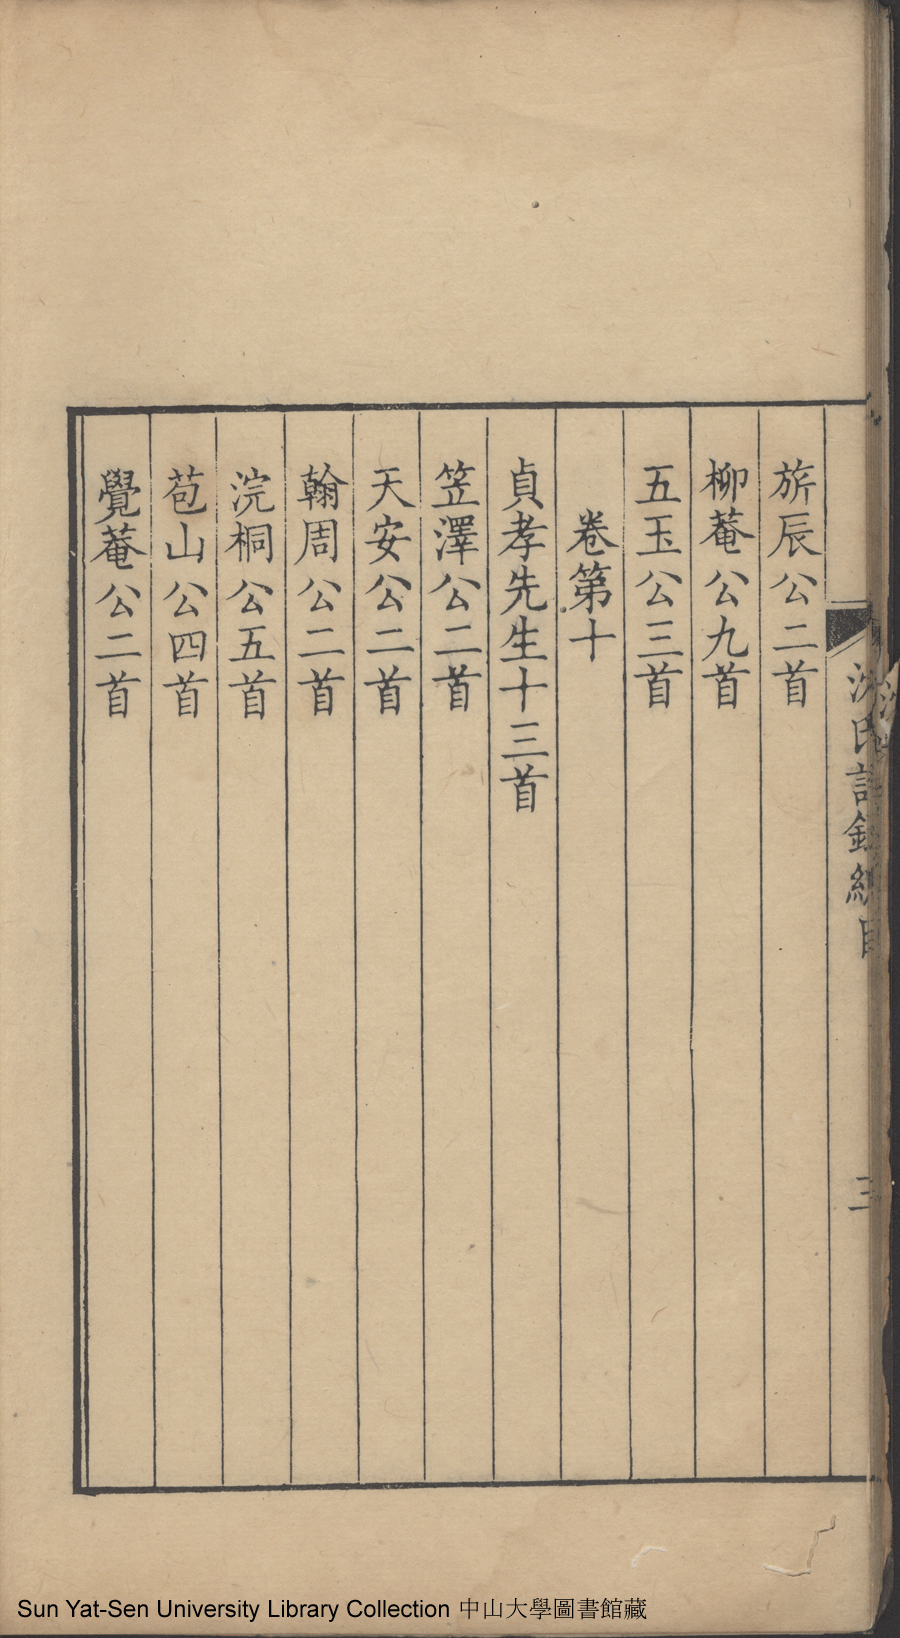 旂辰公二首
柳菴公九首
五玉公三首
卷第十
貞孝先生十三首
笠澤公二首
天安公二首
翰周公二首
浣桐公五首
苞山公四首
覺菴公二首
氏詩錄總目
三
Sun Yat-Sen University Library Collection 中山大學圖書館藏